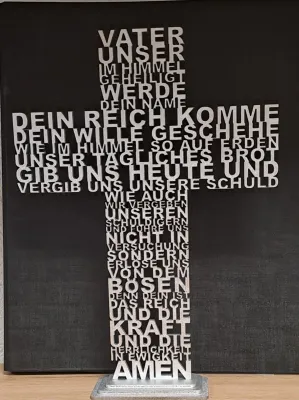 VATER
UNSER
IM HIMMEL
GEHEILIGT
WERDE
DEIN NAME
DEIN REICH KOMME
DEIN WILLE GESCHEHE
WIE IM HIMMEL SO AUF ERDEN
UNSER TÄGLICHES BROT
GIB UNS HEUTE UND
VERGIB UNS UNSERE SCHULD
WIE AUCH
WIR VERGEBEN
UNSEREN
SCHULDIGERN
UND FÜHRE UNS
NICHT IN
VERSUCHUNG
SONDERN
ERLÖSE UNS
VON DEM
BÖSEN
DENN DEIN IST
DAS REICH
UND DIE
KRAFT
UND DIE
HERRLICHKEIT
IN EWIGKEIT
AMEN